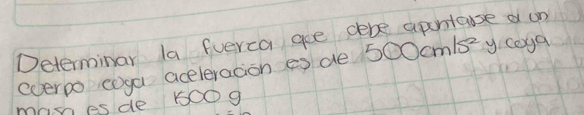 Determinar la fuerca que debe apuntarse a un
cuerpo coya aceleración es de 500cm/s² y coya
masa es de 1500 g